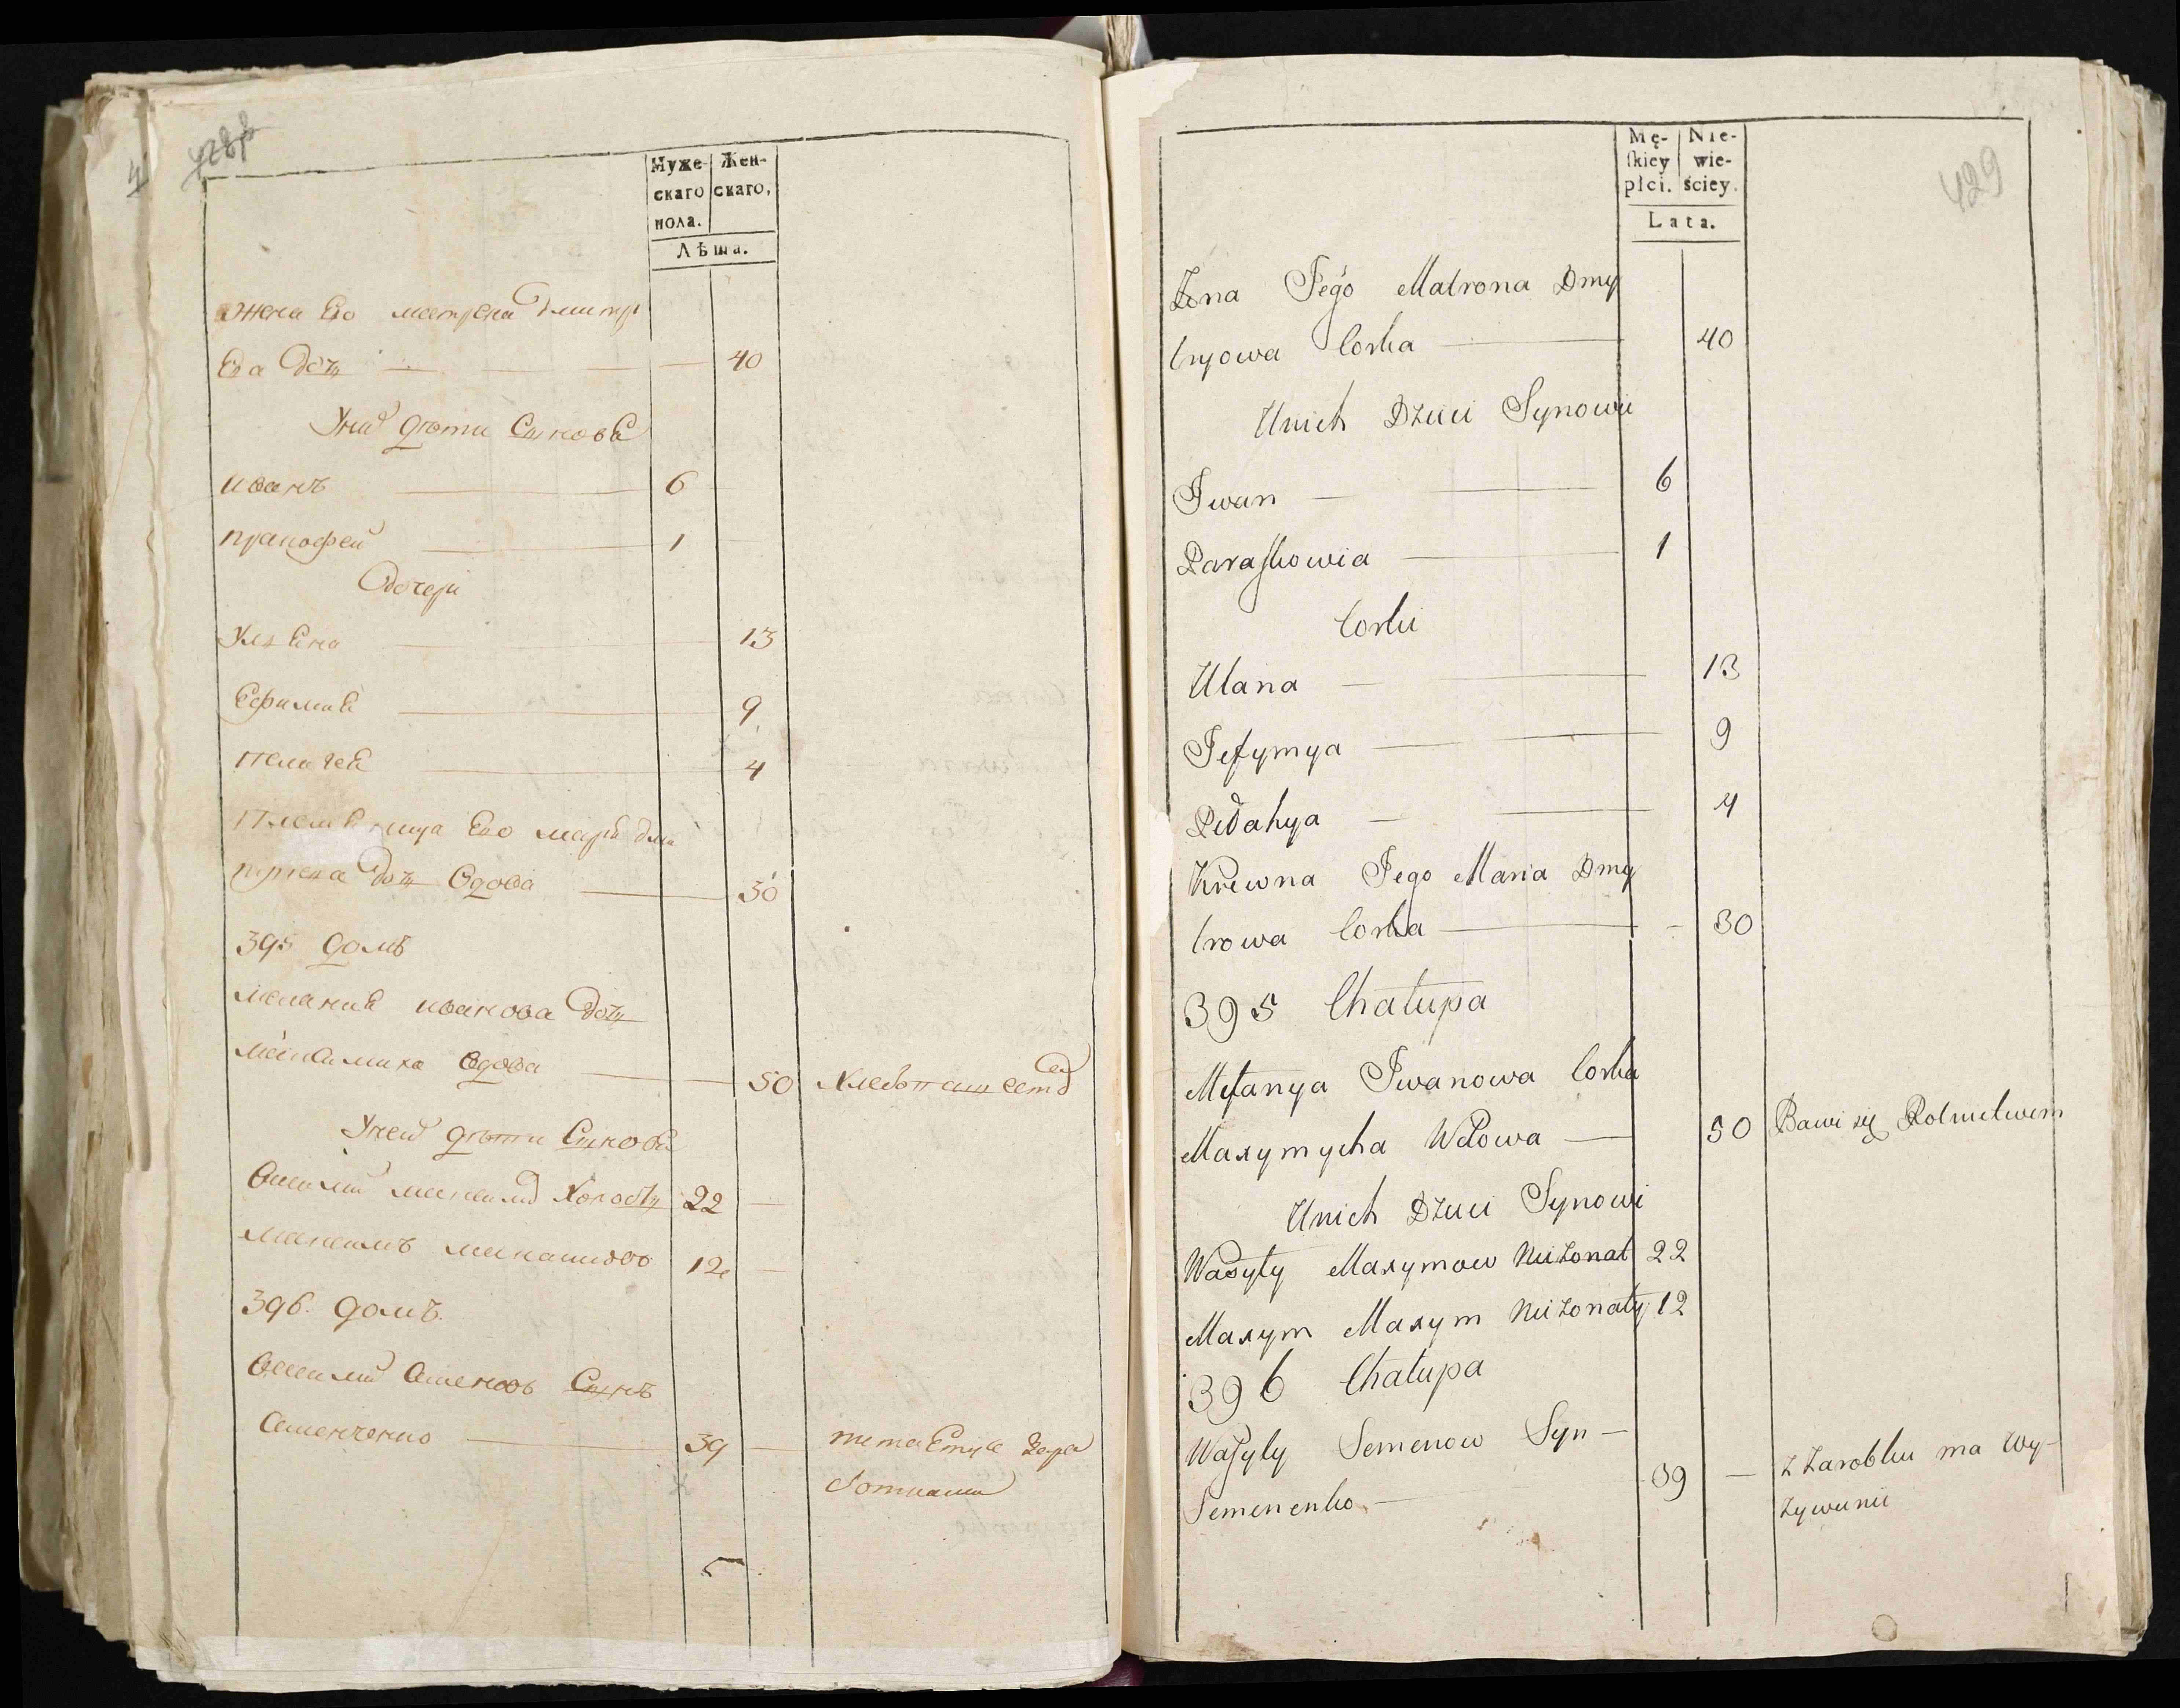 428
Муже-
скаго
пола.
Жен-
скаго,
Лѣта.
Жена Его матрена дмитр
Ева дочь 40
У нихъ дѣти Сыновѣ
иванъ 6
пракофей 1
дочери
Улѣена 13
Ефимиѣ 9
Пелагеѣ 4
Племѣница Ево марѣ дми
триева дочь вдова 30
395 домъ
меланиѣ иванова дочь
максимиха вдова 50
У неи дѣти Сыновѣ
василий максимо холость 22
максимъ максимовъ 12
396. домъ.
василий семеновъ Сынъ
Семенченко 39
5
429
Mę-
skiey
płci.
Nie-
wie-
ściey.
Lata.
Żona Jego Matrona Dmy
tryowa Corka 40
Unich Dzieci Synowie
Iwan 6
Paraskowia 1
Corki
Ulana 13
Jefymya 9
Pelahya 4
Krewna Jego Maria Dmy
trowa Corka 30
395 Chałupa
Mełanya Iwanowa Corka
Maxymycha Wdowa 50 Bawi się Rolnictwem
Unich Dzieci Synowi
Wasyly Maxymow Nieżonat 22
Maxym Maxym Nieżonaty 12
396 Chałupa
Wasyly Semenow Syn
Semenenko 39 z Zarobku ma Wy-
żywienie